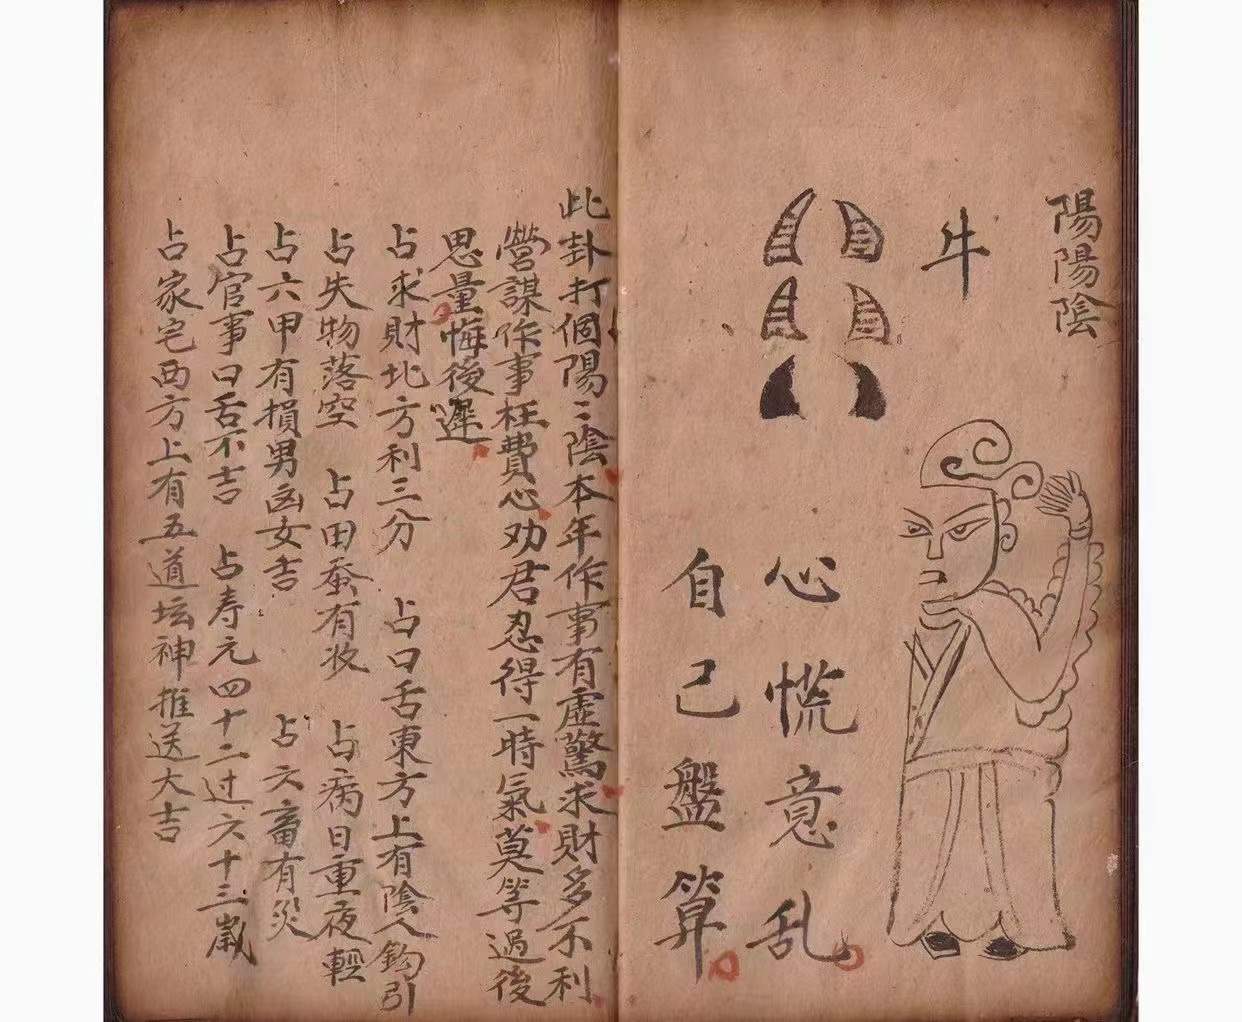 陽陽陰
牛
心慌意乱
自己盤算
此卦打個陽〻陰本年作事有虛驚求財多不利
營謀作事枉費心劝君忍得一時氣莫等過後
思量悔後遲
占求財北方利三分　占口舌東方上有陰人鈎引
占失物落空　占田蚕有收　占病日重夜輕
占六甲有損男凶女吉　占六畜有災
占官事口舌不吉　占寿元四十二过六十三歲
占家宅西方上有五道坛神推送大吉